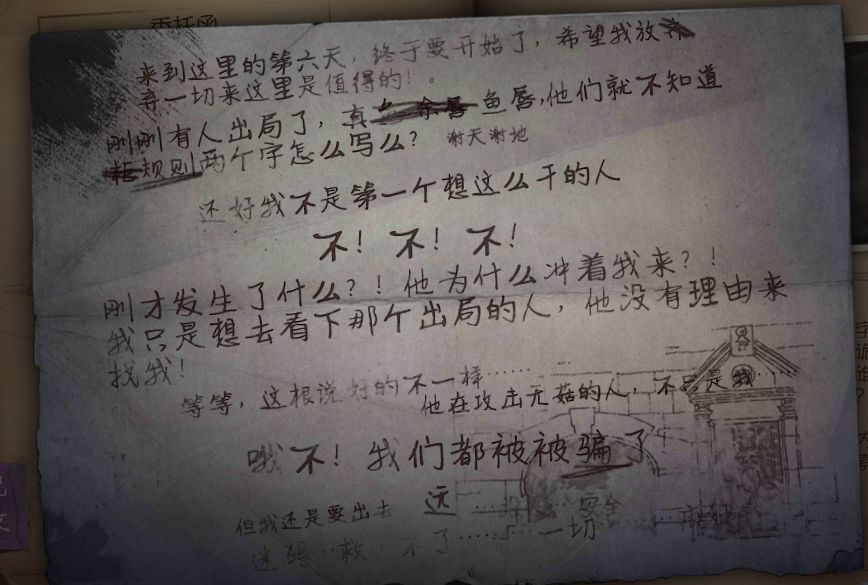 委托函
来到这里的第六天，终于要开始了，希望我放弃
弃一切来这里是值得的！。
刚刚有人出局了，真 鱼唇，他们就不知道
规则两个字怎么写么？ 谢天谢地
还好我不是第一个想这么干的人
不！不！不！
刚才发生了什么？！他为什么冲着我来？！
我只是想去看下那个出局的人，他没有理由来
找我！
等等，这根说好的不一样……
他在攻击无菇的人，不只是我……
哦不！我们都被被骗了
但我还是要出去 远 …… 安全
迷 …… 救 不了 …… 一切